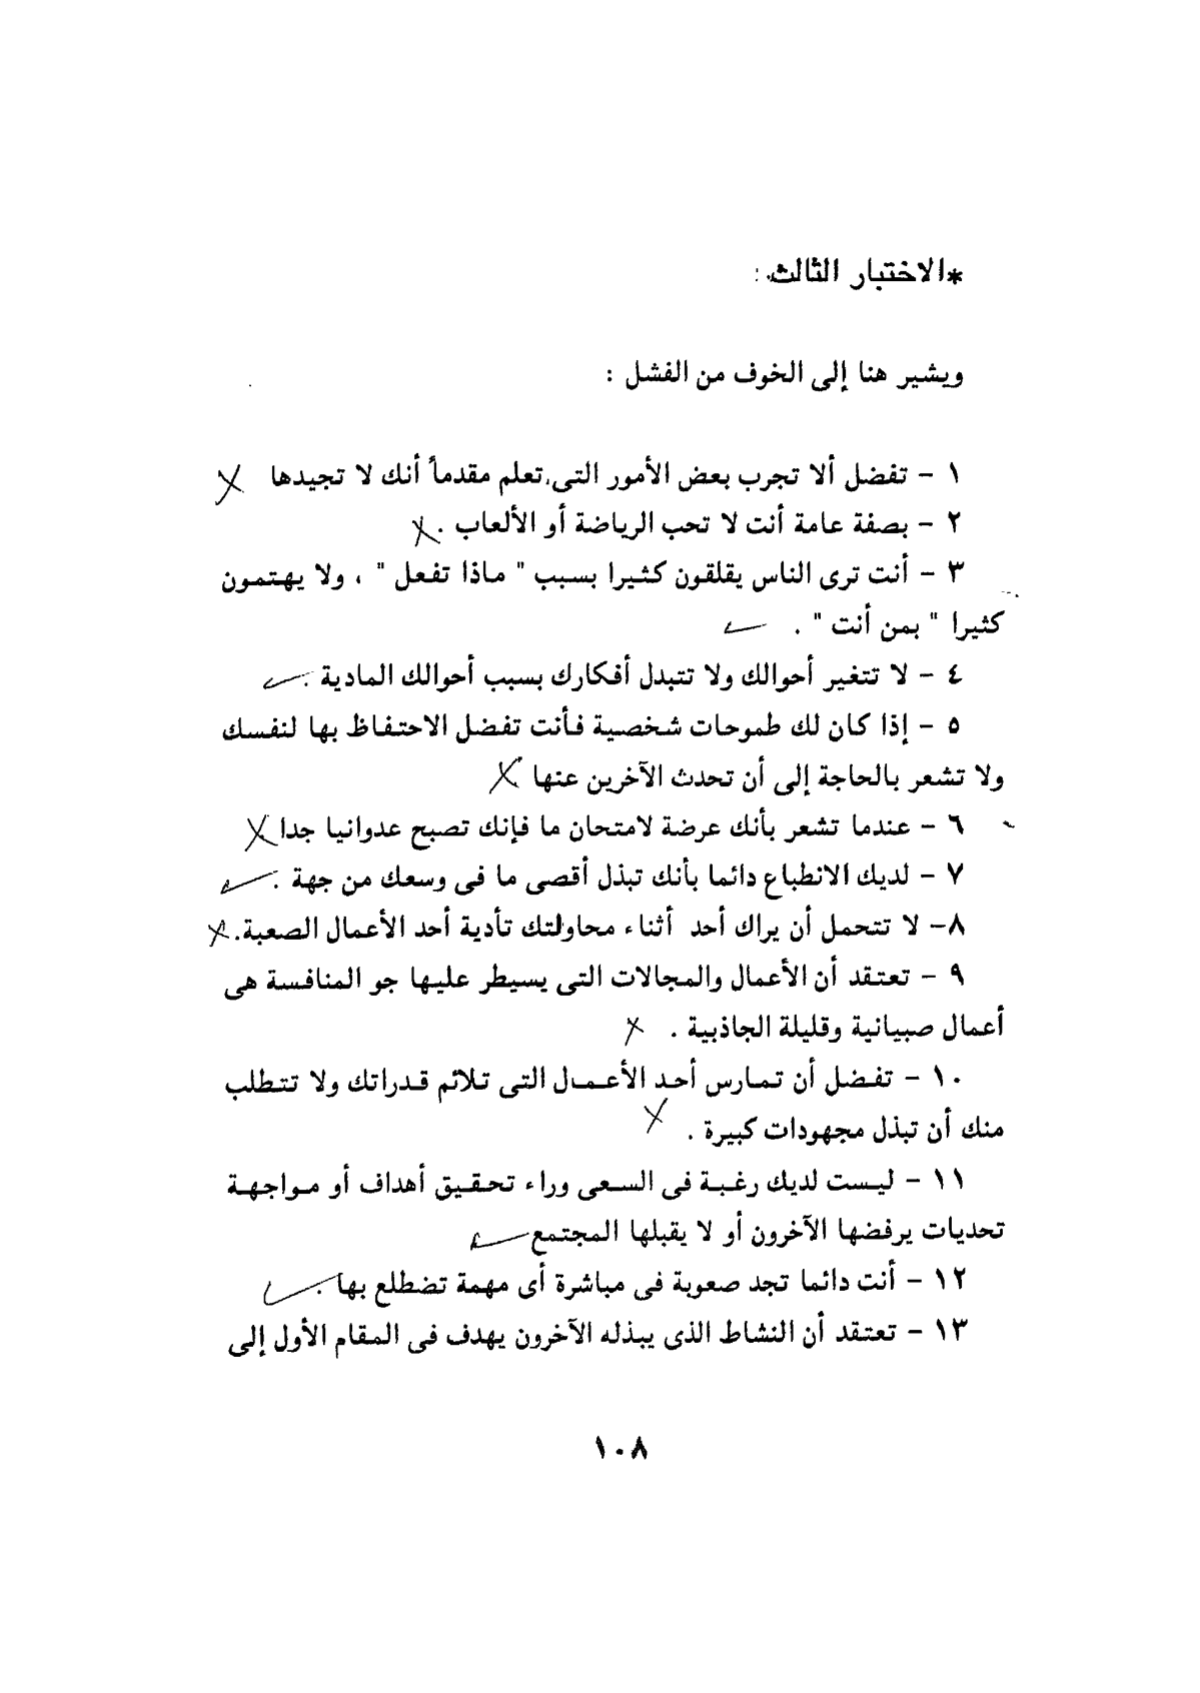 *الاختبار الثالث :
ويشير هنا إلى الخوف من الفشل :
١ - تفضل ألا تجرب بعض الأمور التى تعلم مقدماً أنك لا تجيدها
٢ - بصفة عامة أنت لا تحب الرياضة أو الألعاب .
٣ - أنت ترى الناس يقلقون كثيرا بسبب " ماذا تفعل " ، ولا يهتمون
كثيرا " بمن أنت " .
٤ - لا تتغير أحوالك ولا تتبدل أفكارك بسبب أحوالك المادية .
٥ - إذا كان لك طموحات شخصية فأنت تفضل الاحتفاظ بها لنفسك
ولا تشعر بالحاجة إلى أن تحدث الآخرين عنها
٦ - عندما تشعر بأنك عرضة لامتحان ما فإنك تصبح عدوانيا جدا
٧ - لديك الانطباع دائما بأنك تبذل أقصى ما فى وسعك من جهة .
٨- لا تتحمل أن يراك أحد أثناء محاولتك تأدية أحد الأعمال الصعبة.
٩ - تعتقد أن الأعمال والمجالات التى يسيطر عليها جو المنافسة هى
أعمال صبيانية وقليلة الجاذبية .
١٠ - تفضل أن تمارس أحد الأعمال التى تلائم قدراتك ولا تتطلب
منك أن تبذل مجهودات كبيرة .
١١ - ليست لديك رغبة فى السعى وراء تحقيق أهداف أو مواجهة
تحديات يرفضها الآخرون أو لا يقبلها المجتمع
١٢ - أنت دائما تجد صعوبة فى مباشرة أى مهمة تضطلع بها .
١٣ - تعتقد أن النشاط الذى يبذله الآخرون يهدف فى المقام الأول إلى
١٠٨